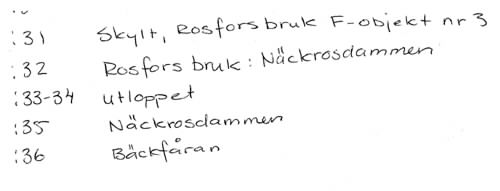 :31 Skylt, Rosfors bruk F-objekt nr 3
:32 Rosfors bruk: Näckrosdammen
:33-34 utloppet
:35 Näckrosdammen
:36 Bäckfåran